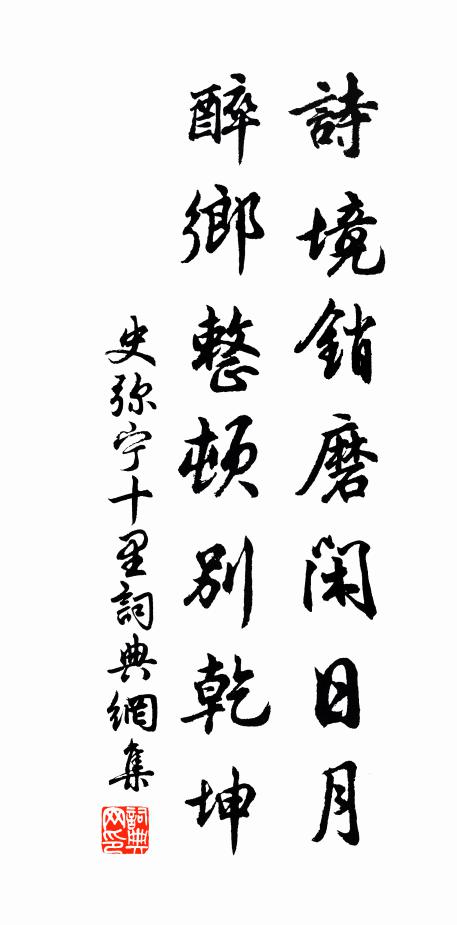 詩境銷磨閑日月
醉鄉整頓別乾坤
史弥宁十里詞典網集
詞典
网印